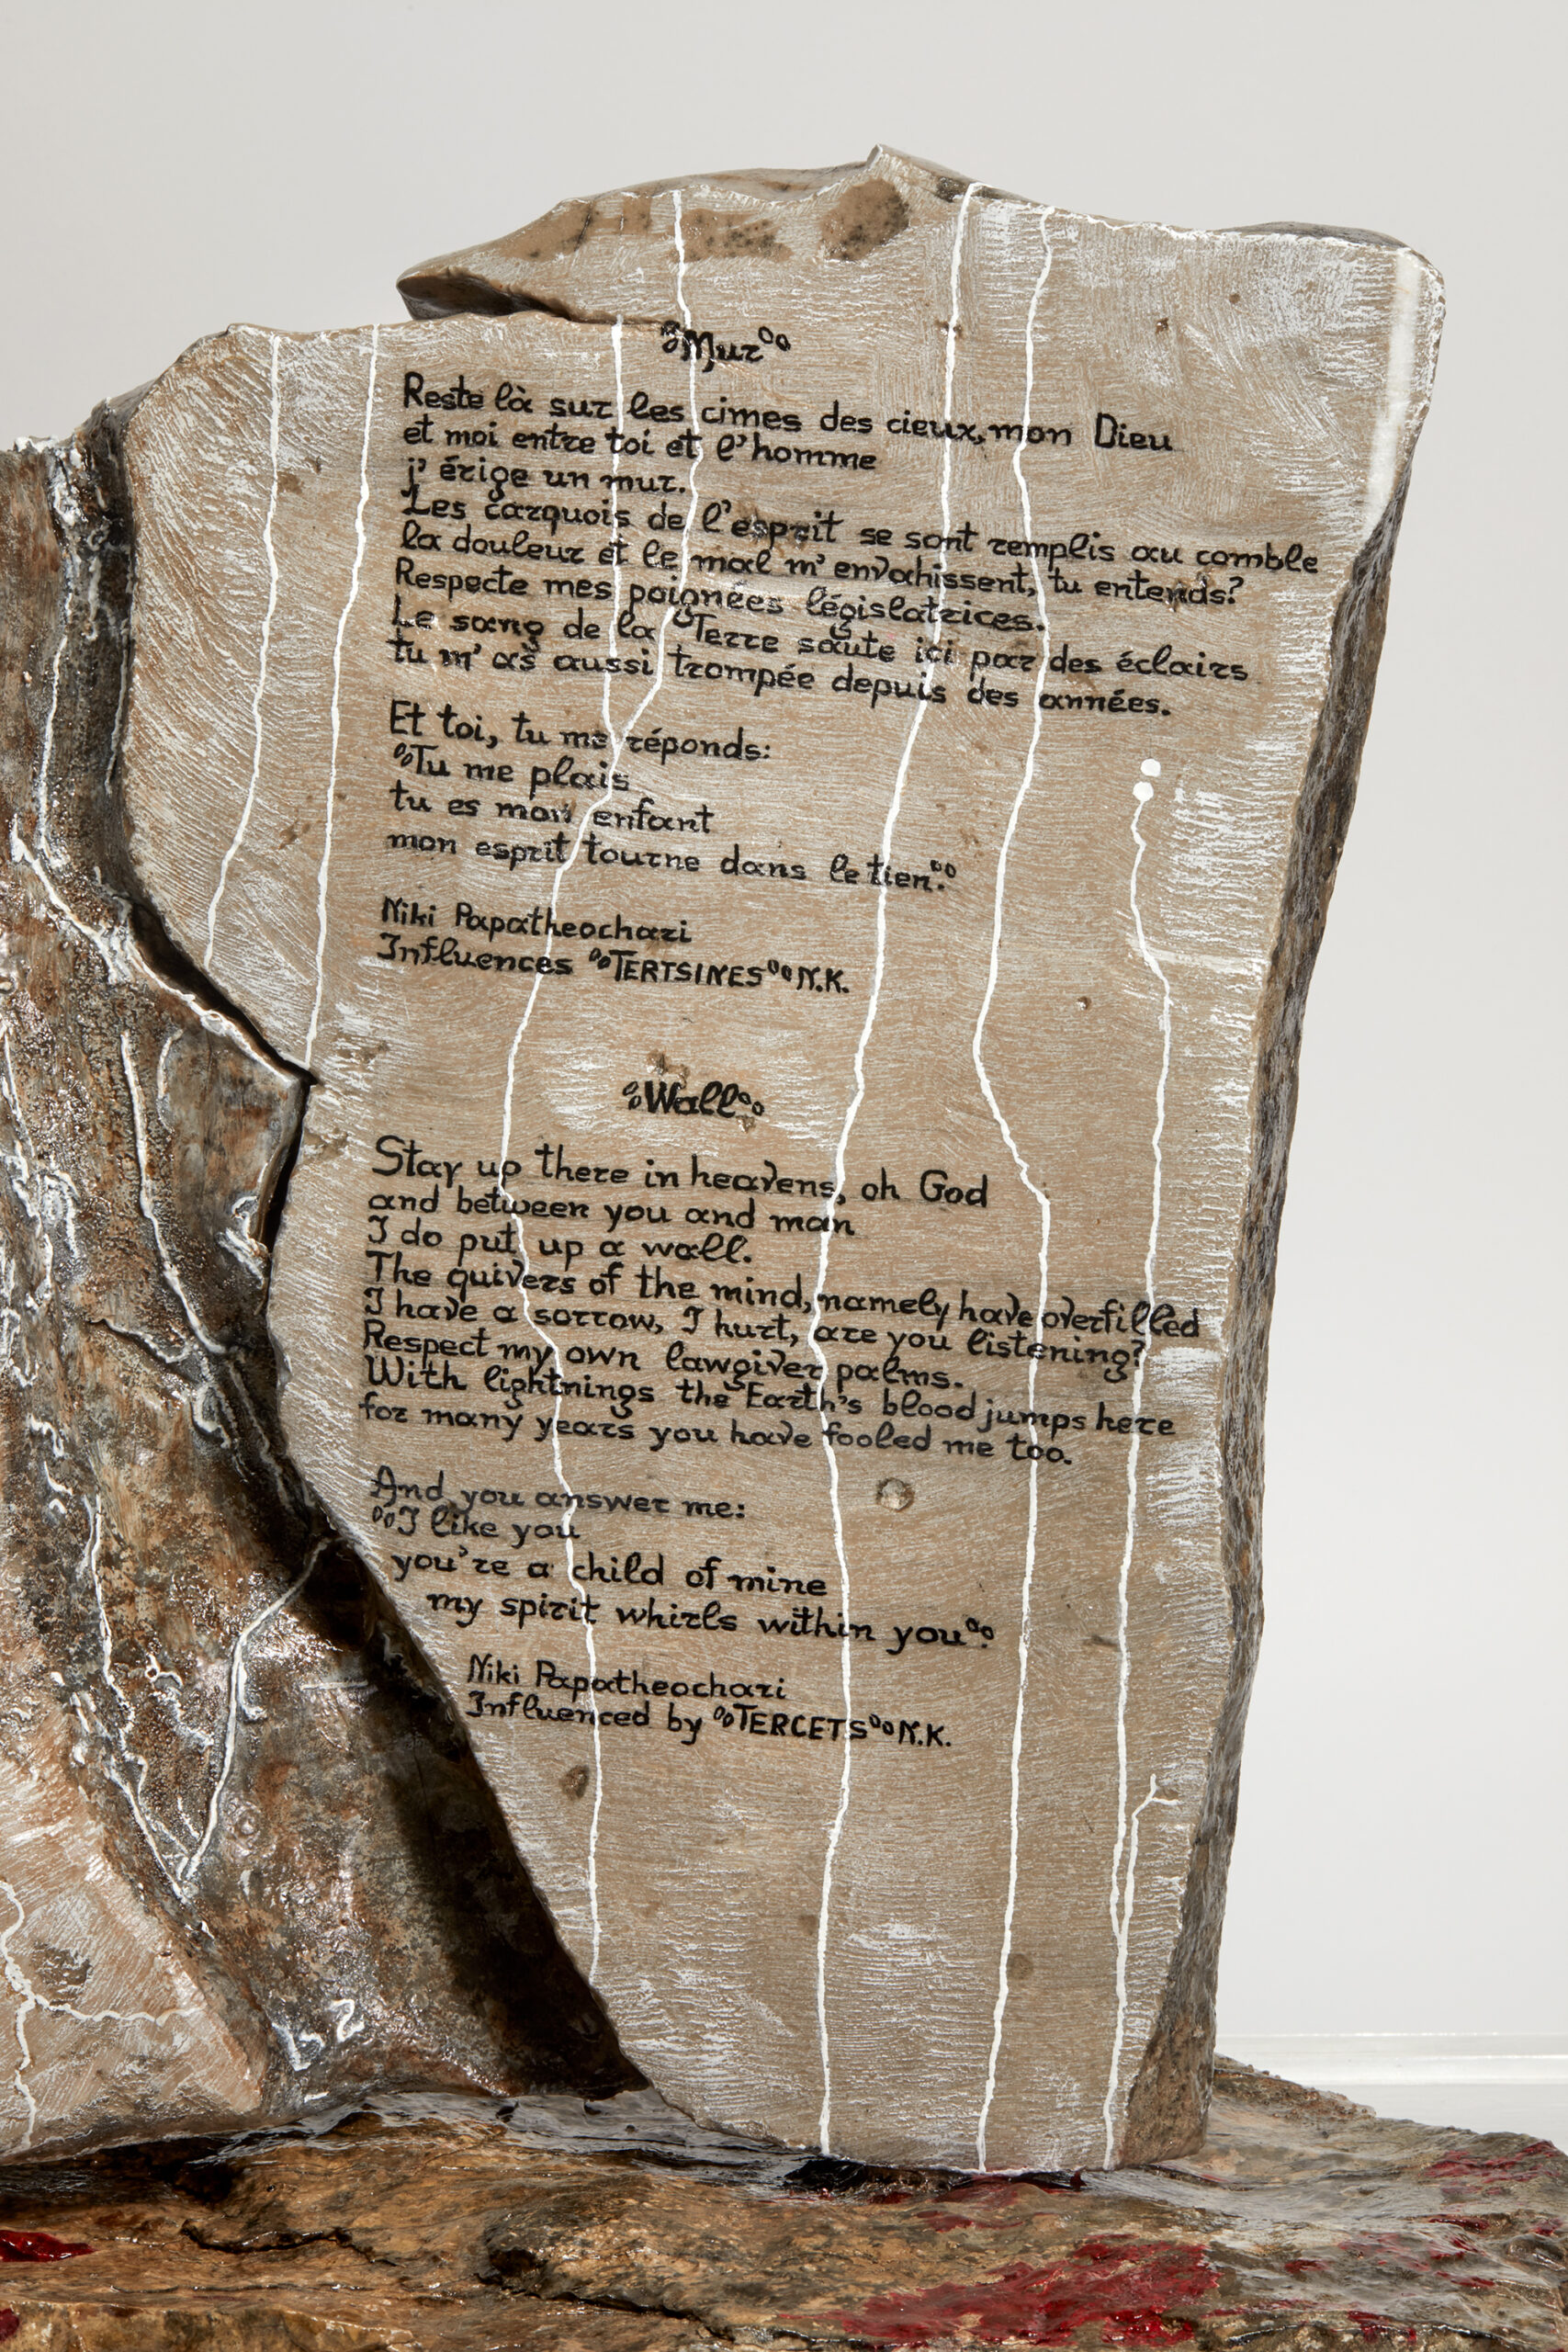 "Mur"
Reste là sur les cimes des cieux, mon Dieu
et moi entre toi et l'homme
j' érige un mur.
Les carquois de l'esprit se sont remplis au comble
la douleur et le mal m' envahissent, tu entends?
Respecte mes poignées législatrices.
Le sang de la Terre saute ici par des éclairs
tu m' as aussi trompée depuis des années.
Et toi, tu me réponds:
"Tu me plais
tu es mon enfant
mon esprit tourne dans le tien".
Niki Papatheochari
Influences "TERTSINES" N.K.
"Wall"
Stay up there in heavens, oh God
and between you and man
I do put up a wall.
The quivers of the mind, namely have overfilled
I have a sorrow, I hurt, are you listening?
Respect my own lawgiver palms.
With lightnings the Earth's blood jumps here
for many years you have fooled me too.
And you answer me:
"I like you
you're a child of mine
my spirit whirls within you".
Niki Papatheochari
Influenced by "TERCETS" N.K.